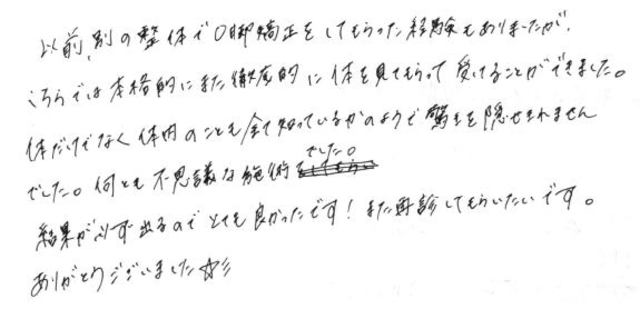 以前、別の整体でO脚矯正をしてもらった経験もありましたが、
こちらでは本格的にまた徹底的に体を見てもらって受けることができました。
体だけでなく体内のことも全て知っているかのようで驚きを隠せきれません
でした。何とも不思議な施術でした。
結果が必ず出るのでとても良かったです！また再診してもらいたいです。
ありがとうございました☆彡